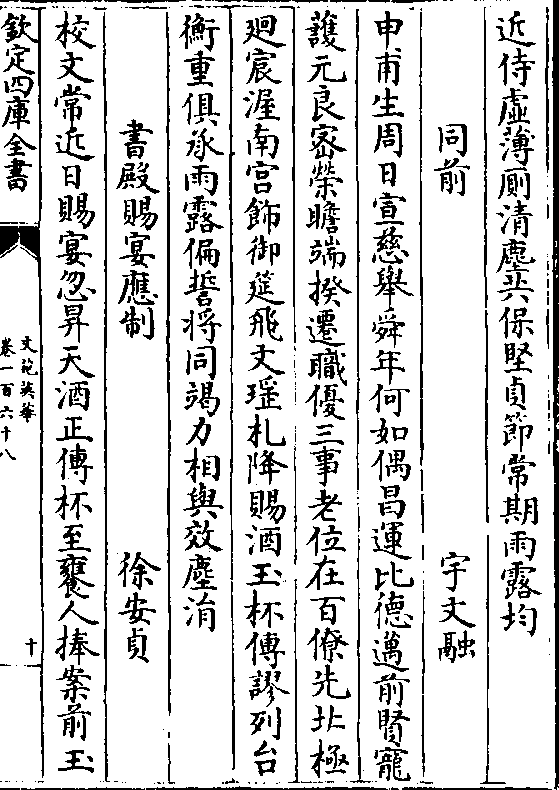 近侍虛薄廁清塵共保堅貞節常期雨露均
同前　宇文融
申甫生周日宣慈舉舜年何如偶昌運比德邁前賢寵
䕶元良宻榮瞻端揆遷職優三事老位在百僚先北極
廻宸渥南宫飾御筵飛文瑶札降賜酒玉杯傳謬列台
衡重俱承雨露偏誓将同竭力相與效塵涓
書殿賜宴應制　徐安貞
校文常近日賜宴忽昇天酒正傳杯至饔人捧案前玉
欽定四庫全書
文苑英華
卷一百六十八
十